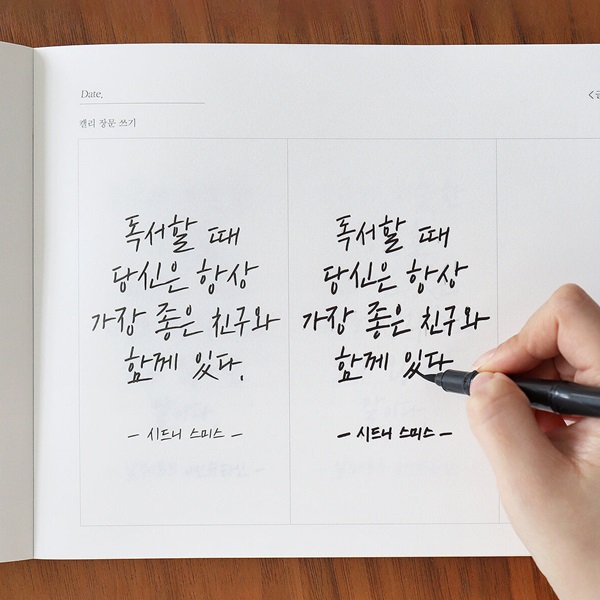 Date.
캘리 장문 쓰기
독서할 때
당신은 항상
가장 좋은 친구와
함께 있다.
- 시드니 스미스 -
독서할 때
당신은 항상
가장 좋은 친구와
함께 있다
- 시드니 스미스 -